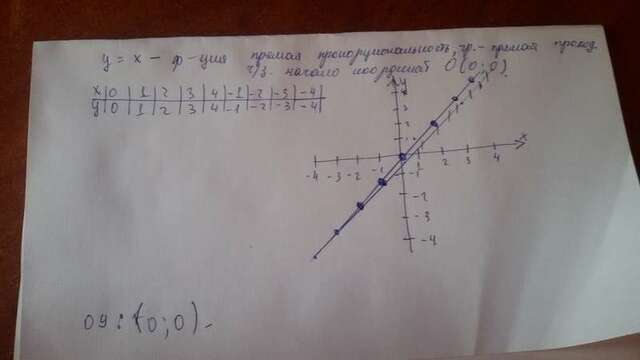 y = x – ф-ция прямая пропорциональность, гр. – прямая проход.
ч/з. начало координат O (0; 0)
x | 0 | 1 | 2 | 3 | 4 | -1 | -2 | -3 | -4 |
y | 0 | 1 | 2 | 3 | 4 | -1 | -2 | -3 | -4 |
y
4
3
2
1
x
-4 -3 -2 -1 1 2 3 4
-1
-2
-3
-4
oy : (0; 0).